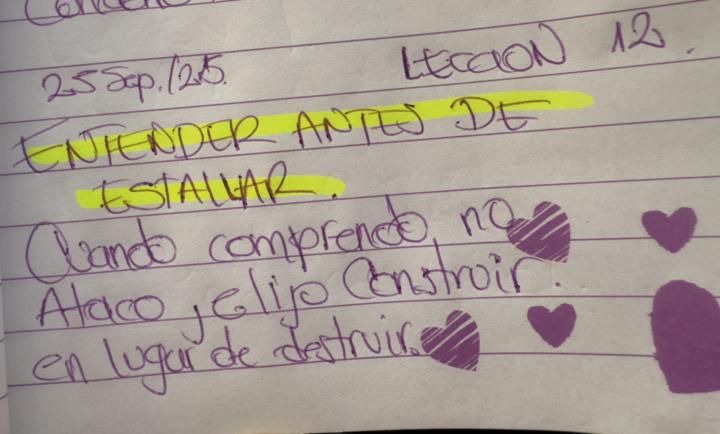 25 Sep./25. LECCION 12.
ENTENDER ANTES DE
ESTALLAR.
Cuando comprendo, no
Ataco, elijo Construir.
en lugar de destruir.